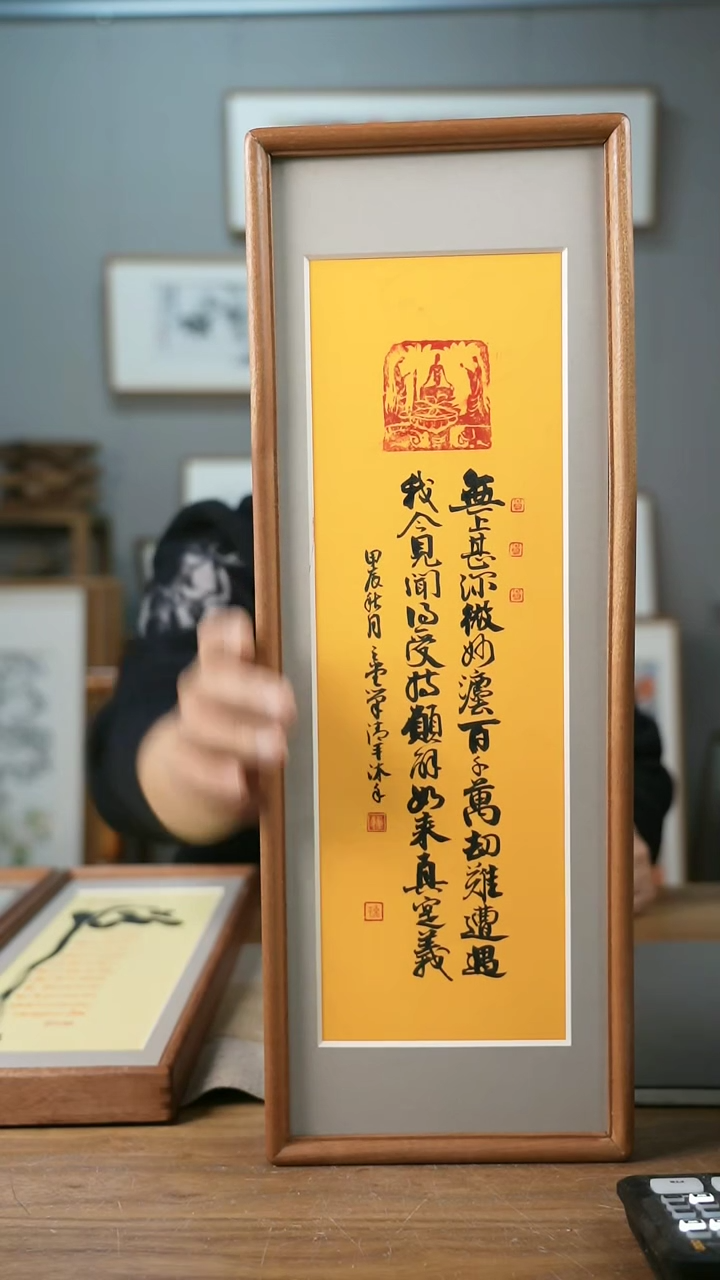 無上甚深微妙灋百千萬劫難遭遇
我今見聞得受持願解如來真實義
甲辰秋月 沐手